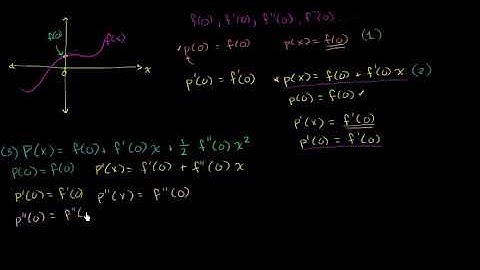 f(0), f'(0), f''(0), f'''(0)...
f(0)
f(x)
x
p(0) = f(0)
p(x) = f(0) (1)
p'(0) = f'(0)
p(x) = f(0) + f'(0) x (2)
p(0) = f(0)
p'(x) = f'(0)
p'(0) = f'(0)
(3) P(x) = f(0) + f'(0) x + 1/2 f''(0) x²
p(0) = f(0)
p'(x) = f'(0) + f''(0) x
p'(0) = f'(0)
p''(x) = f''(0)
p''(0) = f''(